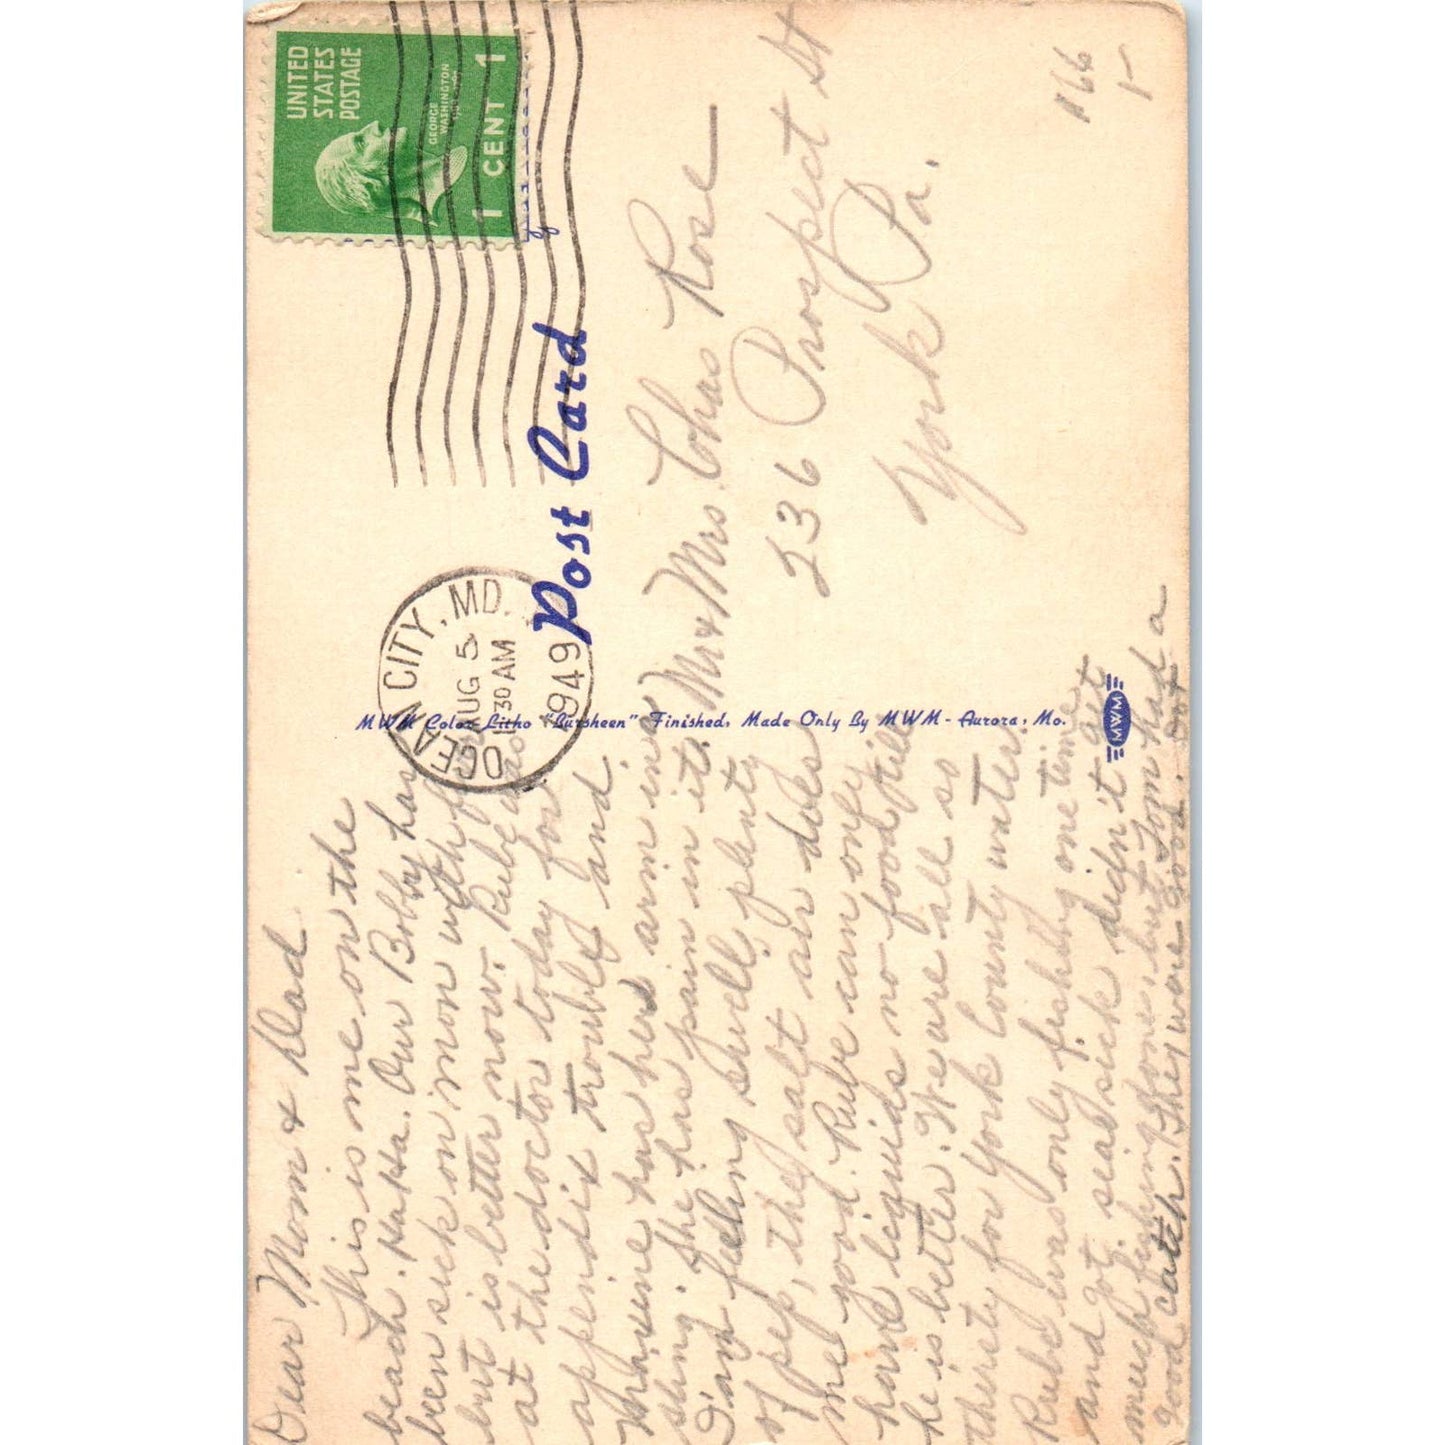 Dear Mom & Dad
This is me on the
beach. HaHa. Our Bobby has
been sick on mon with
but is better now. Rube was
at the doctor today for
appendix trouble and
Maxine has her arm in a
sling. She has pain in it.
I am feeling swell, plenty
of pep, the salt air does
me good. Rube can only
have liquids no food till
he is better. We are all so
thirsty for York County water.
Rube was only fishing one time
and got seasick didn't get
much fishing done, but Tom had a
good catch. They were good.
UNITED
STATES
POSTAGE
GEORGE
WASHINGTON
1 CENT 1
OCEAN CITY, MD.
AUG 5
1 30 AM
1949
Post Card
Mr & Mrs. Chas Rose
236 Prospect St
York Pa.
MWM Color-Litho "Bursheen" Finished, Made Only By MWM - Aurora, Mo.
MWM